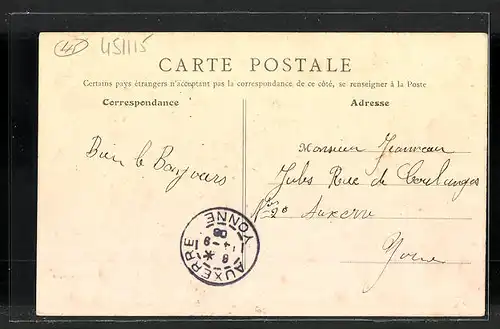 451115
CARTE POSTALE
Certains pays étrangers n'acceptant pas la correspondance de ce côté, se renseigner à la Poste
Correspondance
Adresse
Bien le Bonjours
Monsieur Jeanneau
Jules Rue de Coulanges
N=20 Auxerre
Yonne
AUXERRE
YONNE